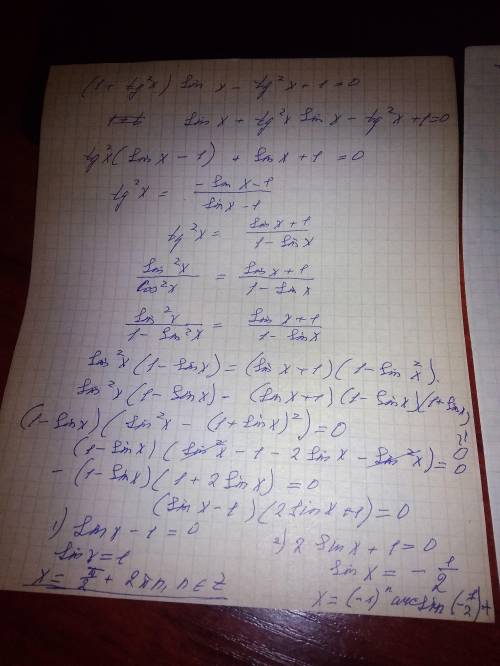 (1 + tg²x) sin x - tg²x + 1 = 0
sin x + tg²x sin x - tg²x + 1 = 0
tg²x (sin x - 1) + sin x + 1 = 0
tg²x = (-sin x - 1)/(sin x - 1)
tg²x = (sin x + 1)/(1 - sin x)
sin²x/cos²x = (sin x + 1)/(1 - sin x)
sin²x/(1 - sin²x) = (sin x + 1)/(1 - sin x)
sin²x (1 - sin x) = (sin x + 1)(1 - sin²x).
sin²x (1 - sin x) - (sin x + 1)(1 - sin x)(1 + sin x) = 0
(1 - sin x)(sin²x - (1 + sin x)²) = 0
(1 - sin x)(sin²x - 1 - 2 sin x - sin²x) = 0
- (1 - sin x)(1 + 2 sin x) = 0
(sin x - 1)(2 sin x + 1) = 0
1) sin x - 1 = 0
sin x = 1
x = π/2 + 2πn, n ∈ Z
2) 2 sin x + 1 = 0
sin x = - 1/2
x = (-1)ⁿ arcsin (-1/2) +